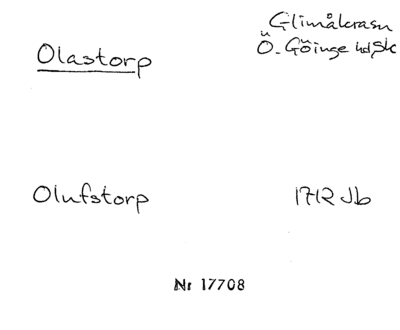 Glimåkrasn
Ö. Göinge hd, Sk
Olastorp
Olufstorp
1712 Jb
Nr 17708